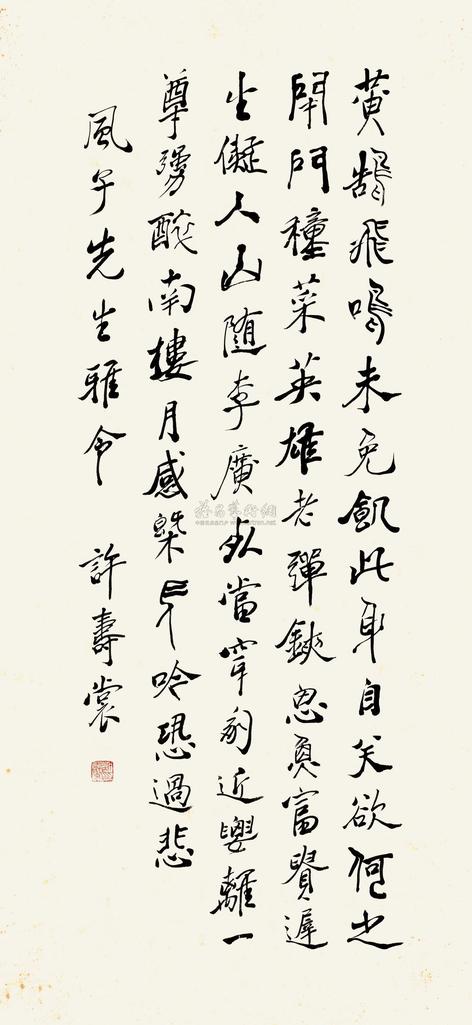 黃鵠飛鳴未免飢此身自笑欲何之
閉門穜菜英雄老彈鋏思魚富貴遲
生儗入山隨李廣死當穿冢近要離一
尊彊醉南樓月感槩長吟恐過悲
風子先生雅令 許壽裳